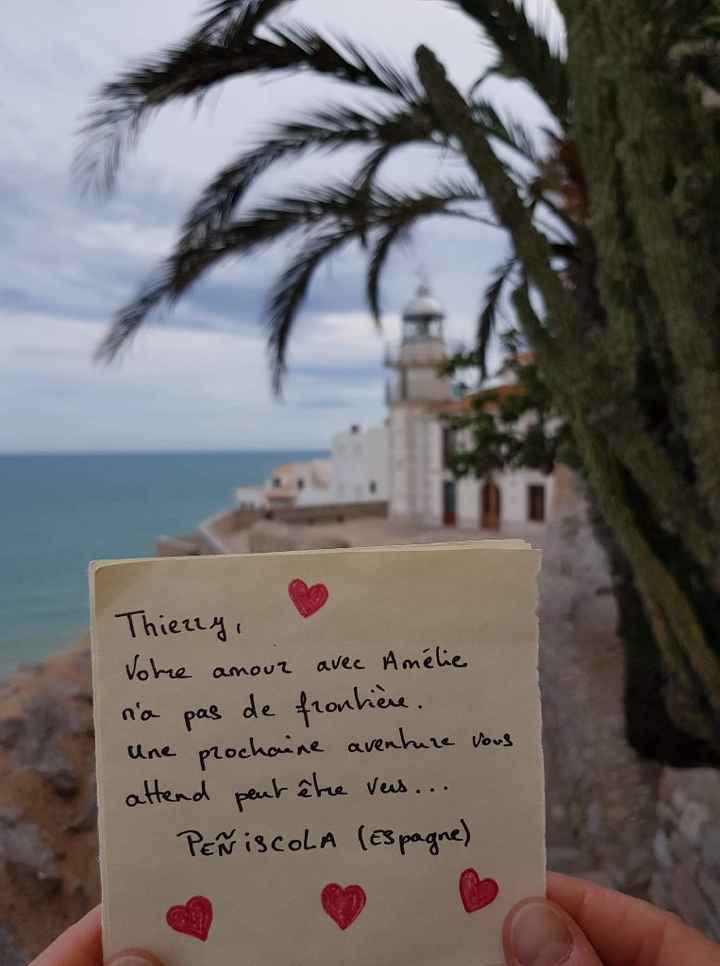 Thierry,
Votre amour avec Amélie
n'a pas de frontière.
une prochaine aventure vous
attend peut être vers...
PEÑiSCOLA (Espagne)